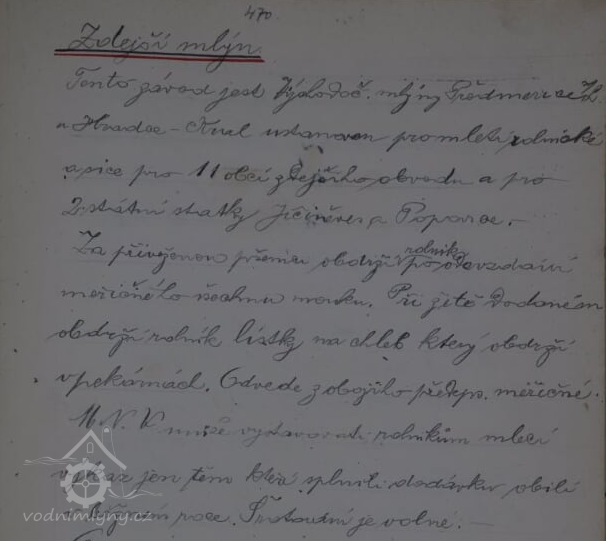 470
Zdejší mlýn.
Tento závod jest Východoč. mlýny Předměřice n/L
u Hradce-Král ustanoven pro mletí rolnické
a sice pro 11 obcí zdejšího obvodu a pro
2 státní statky Jičíněves a Popovice.-
Za přivezenou pšenici obdrží rolník po odevzdání
měřičného všechnu mouku. Při žitě dodaném
obdrží rolník lístky na chleb který obdrží
v pekárnách. Odvede z obojího předeps. měřičné.
M.N.V. může vystavovati rolníkům mlecí
výkaz jen těm kteří splnili dodávku obilí
roce. Šrotování je volné.-
vodnimlyny.cz